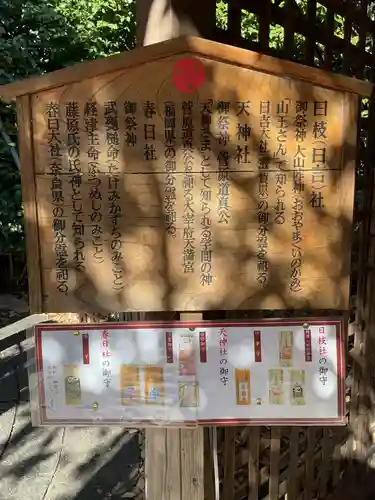 日枝(日吉)社
御祭神 大山咋神(おおやまくいのかみ)
山王さんで知られる
日吉大社(滋賀県)の御分霊を祀る。
天神社
御祭神 菅原道真公
「天神さま」として知られる学問の神
(福岡県)菅公を祀る太宰府天満宮
の御分霊を祀る。
春日社
御祭神
武甕槌命(たけみかづちのみこと)
経津主命(ふつぬしのみこと)
藤原氏の氏神として知られる
春日大社(奈良県)の御分霊を祀る。
日枝社の御守
天神社の御守
春日社の御守